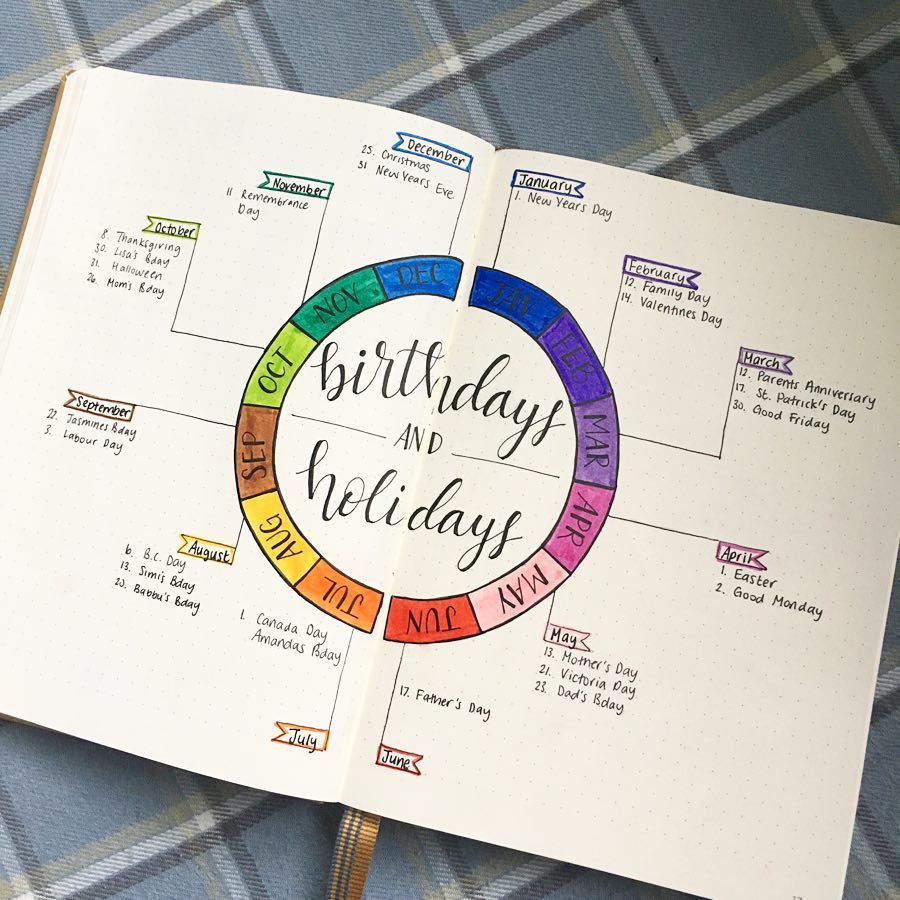 birthdays
AND
holidays
JAN
FEB
MAR
APR
MAY
JUN
JUL
AUG
SEP
OCT
NOV
DEC
January
1. New Years Day
February
12. Family Day
14. Valentines Day
March
12. Parents Anniversary
17. St. Patrick's Day
30. Good Friday
April
1. Easter
2. Good Monday
May
13. Mother's Day
21. Victoria Day
23. Dad's Bday
17. Father's Day
June
1. Canada Day
Amandas Bday
July
August
6. B.C. Day
13. Simi's Bday
20. Babbu's Bday
September
22. Jasmines Bday
3. Labour Day
October
8. Thanksgiving
30. Lisa's Bday
31. Halloween
26. Mom's Bday
November
11 Remembrance
Day
December
25. Christmas
31 New Years Eve